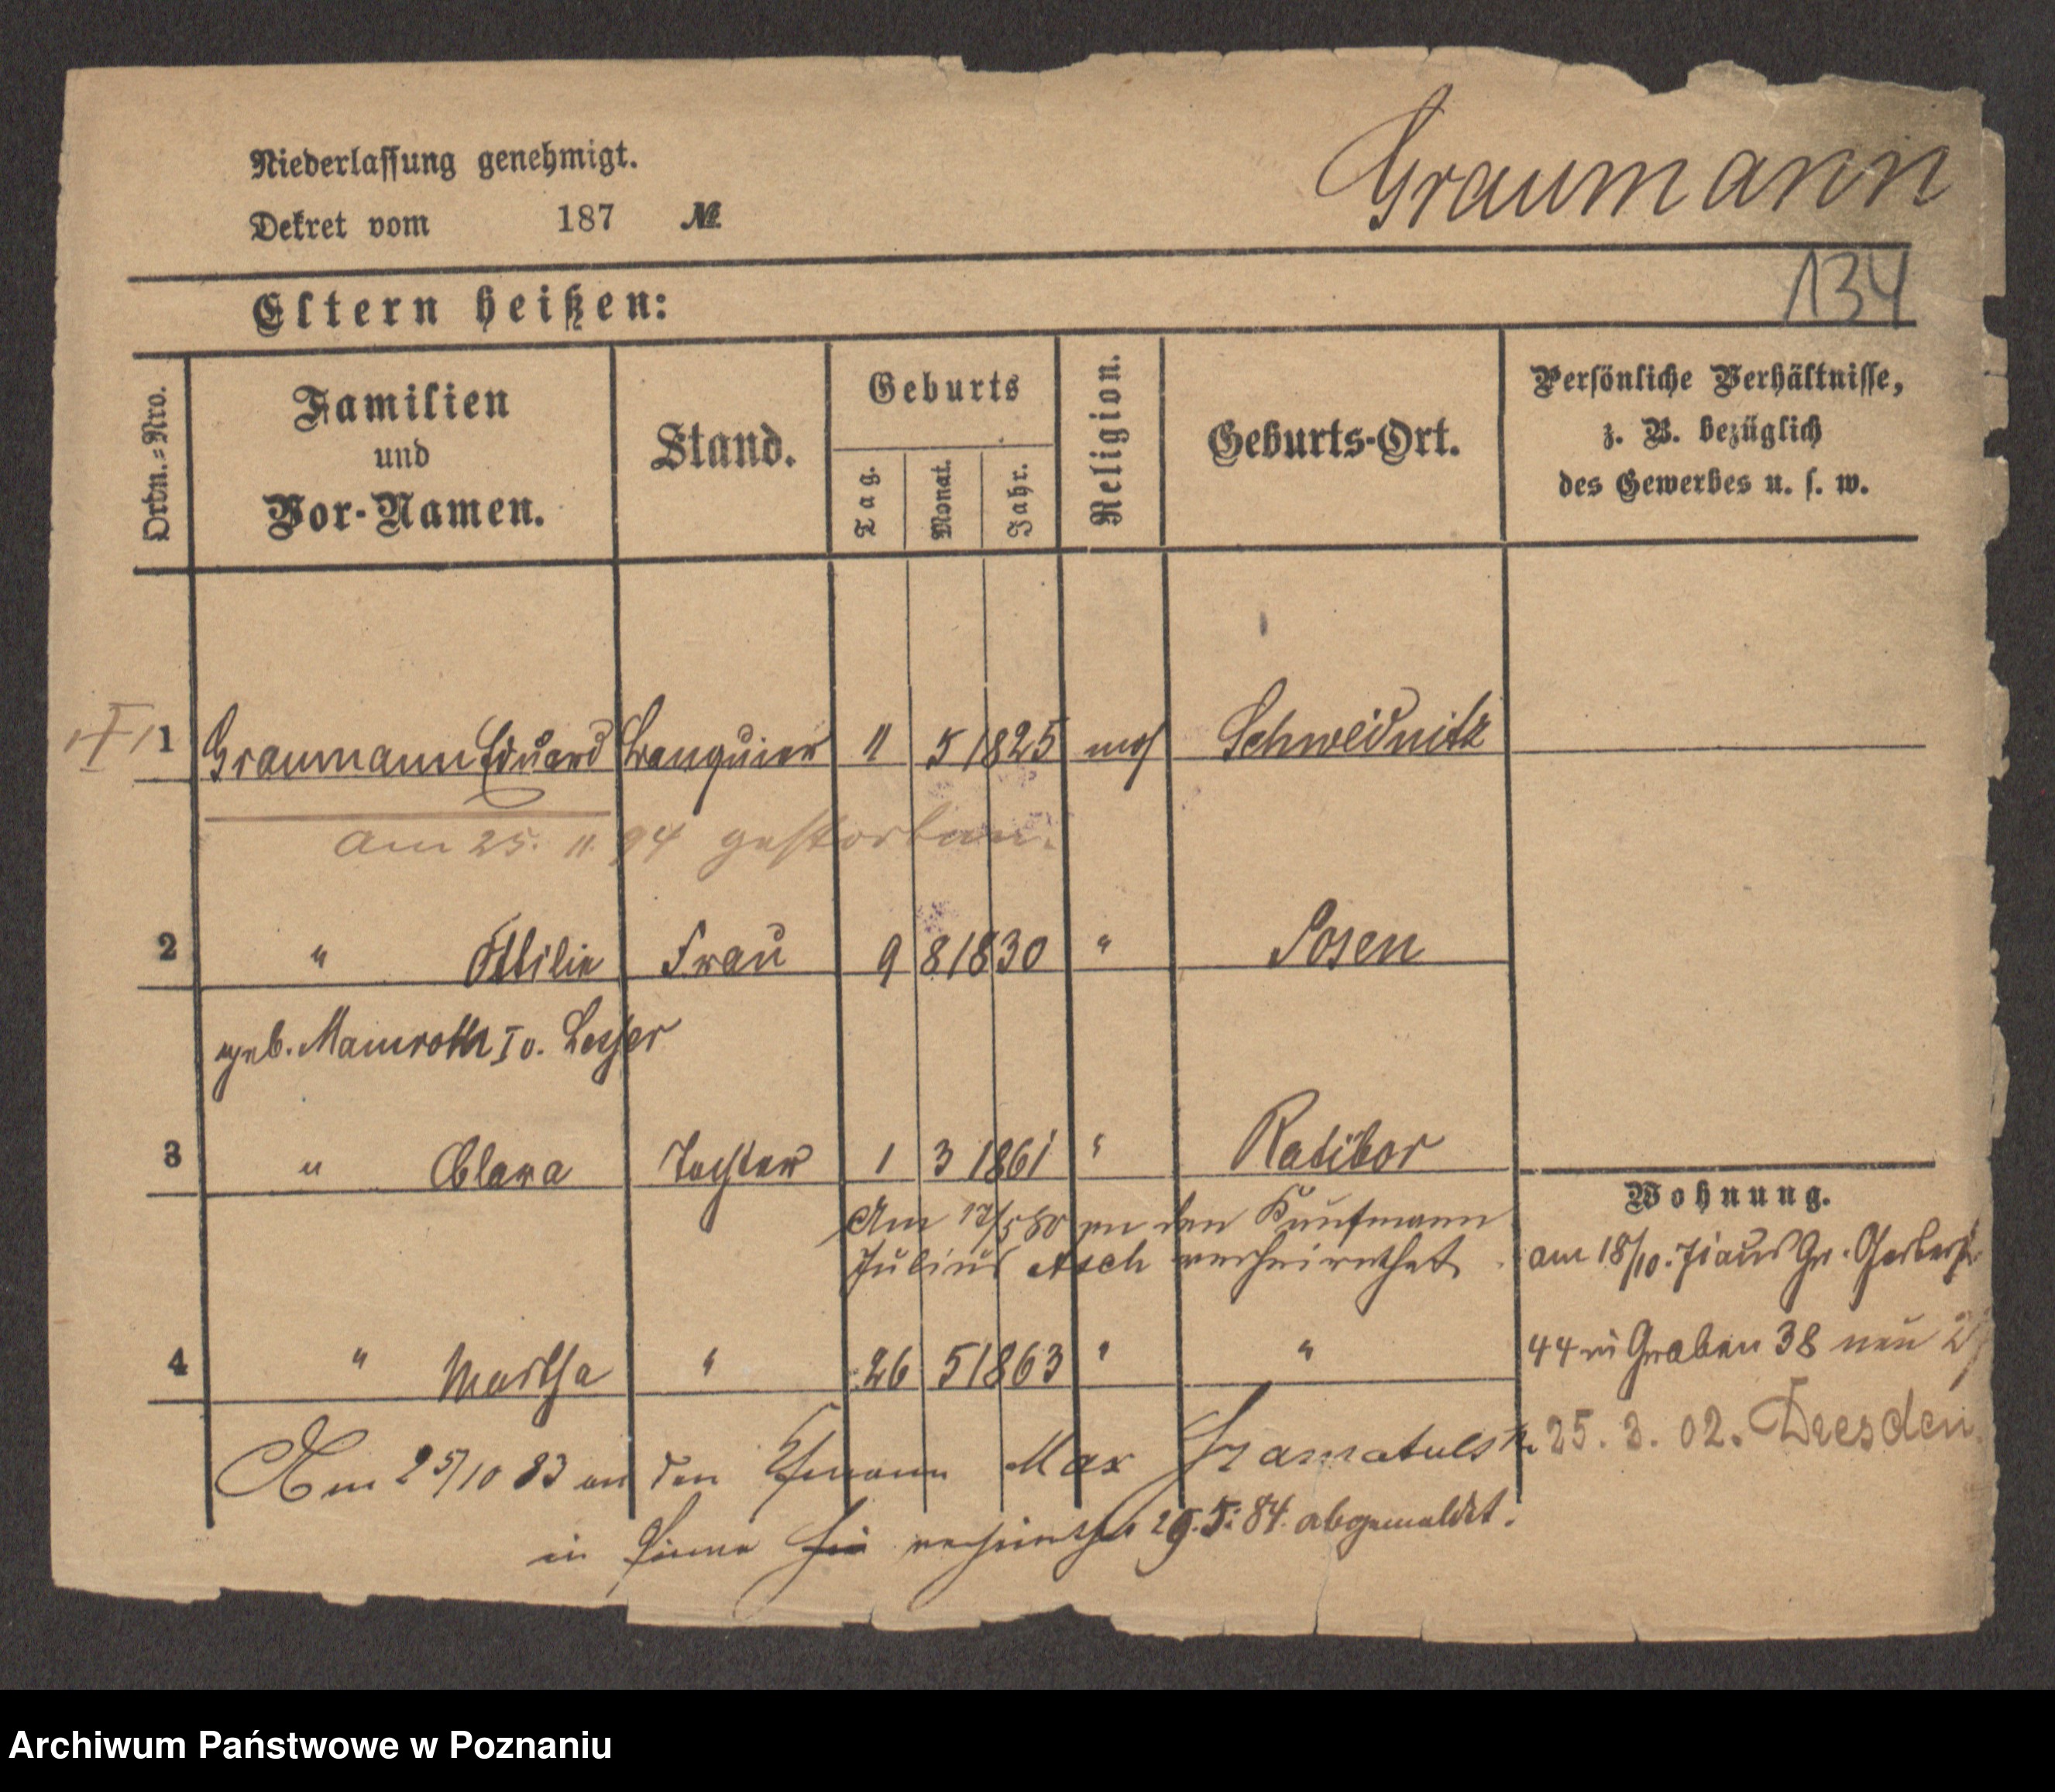 Niederlassung genehmigt.
Graumann
Dekret vom 187 №
134
Eltern heißen:
Ordn.=Nro.
Familien
und
Vor-Namen.
Stand.
Geburts
Tag.
Monat.
Jahr.
Religion.
Geburts-Ort.
Persönliche Verhältnisse,
z. B. bezüglich
des Gewerbes u. s. w.
1 Graumann Eduard Banquier 11 5 1825 mos Schweidnitz
am 25. 11. 94 gestorben.
2 " Ottilie Frau 9 8 1830 " Posen
geb. Mamroth I v. Lesser
3 " Clara Tochter 1 3 1861 " Ratibor
Am 17/5 80 an den Kaufmann
Julius Asch verheirathet.
Wohnung.
am 18/10. 71 aus Gr. Gerberstr
4 " Martha " 26 5 1863 " "
44 n Graben 38 neu
25. 3. 02. Dresden
Am 25/10 83 an den Max
in Pinne verheirathet 29. 5. 84. abgemeldet.
Archiwum Państwowe w Poznaniu